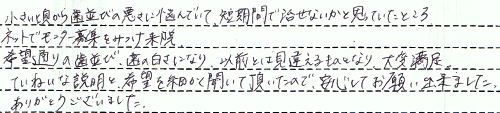 小さい頃から歯並びの悪さに悩んでいて、短期間で治せないかと思っていたところ
ネットでモニター募集をみつけ来院。
希望通りの歯並び、歯の白さになり、以前とは見違えるものとなり、大変満足。
ていねいな説明と、希望を細かく聞いて頂いたので、安心してお願い出来ました。
ありがとうございました。